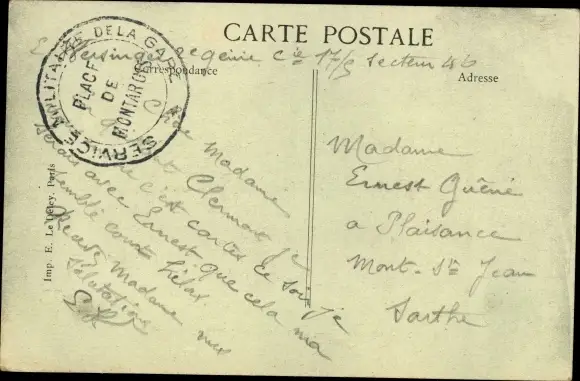 CARTE POSTALE
génie Cie 17/3 Secteur 46
Correspondance
Adresse
SERVICE MILITAIRE DE LA GARE
PLACE
DE
MONTARGIS
Imp. E. Le Deley, Paris
Chère Madame
Clermont je
c'est cartes ce soir je
serais avec Ernest que cela m'a
semblé court hélas
Recevez Madame mes
salutations
Madame
Ernest Guéné
a Plaisance
Mont-St Jean
Sarthe